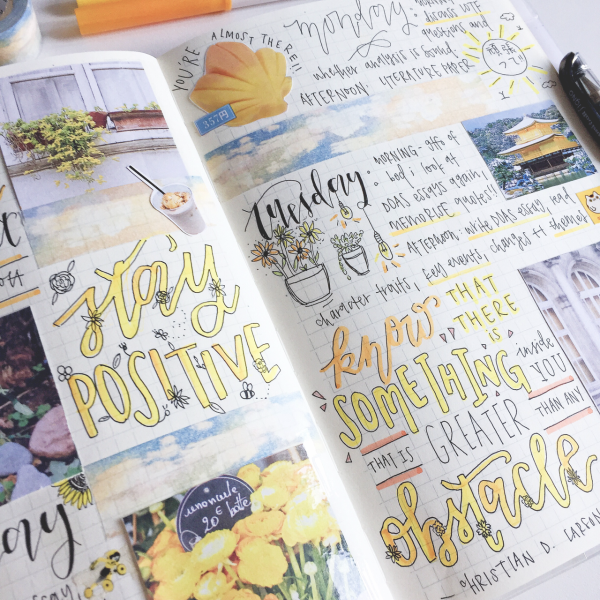 stay
POSITIVE
renoncule
20€ botte
ay
essay,
YOU'RE ALMOST THERE!!
357円
monday
discuss WTF
questions and
whether analysis is sound
AFTERNOON: LITERATURE PAPER
頑張
って!
tuesday
MORNING - gtfo of
bed i look at
DOAS essays again,
MEMORIZE quotes!!
AFTERNOON: write DOAS essay, read
character traits, key events, changes tt themes
know THAT
THERE
is
SOMETHING
inside
YOU
THAT IS GREATER THAN ANY
obstacle
CHRISTIAN D. LARSON